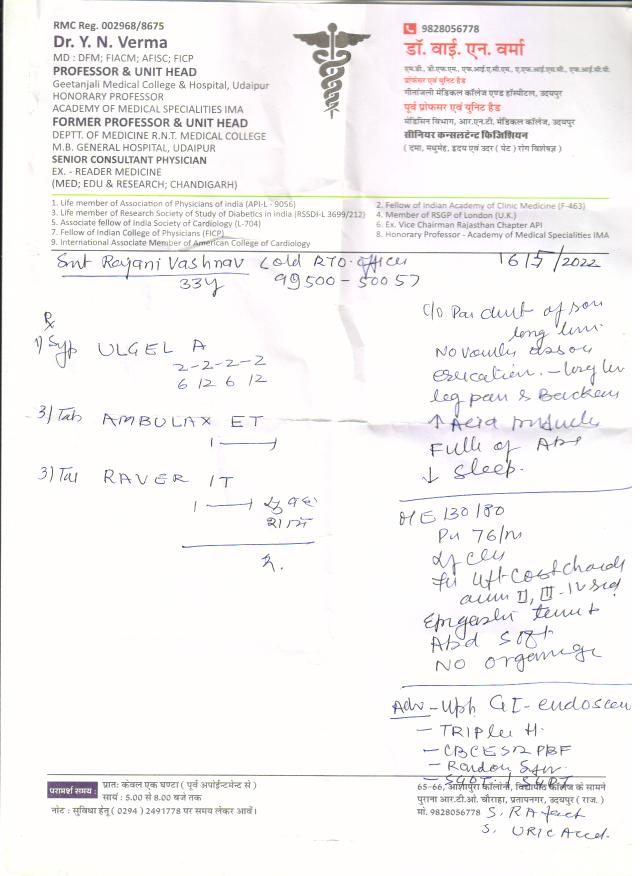 RMC Reg. 002968/8675
Dr. Y. N. Verma
MD : DFM; FIACM; AFISC; FICP
PROFESSOR & UNIT HEAD
Geetanjali Medical College & Hospital, Udaipur
HONORARY PROFESSOR
ACADEMY OF MEDICAL SPECIALITIES IMA
FORMER PROFESSOR & UNIT HEAD
DEPTT. OF MEDICINE R.N.T. MEDICAL COLLEGE
M.B. GENERAL HOSPITAL, UDAIPUR
SENIOR CONSULTANT PHYSICIAN
EX. - READER MEDICINE
(MED; EDU & RESEARCH; CHANDIGARH)
9828056778
डॉ. वाई. एन. वर्मा
एम.डी., डी.एफ.एम., एफ.आई.ए.सी.एम., ए.एफ.आई.एस.सी., एफ.आई.सी.पी.
प्रोफेसर एवं यूनिट हैड
गीतांजली मेडिकल कॉलेज एण्ड हॉस्पीटल, उदयपुर
पूर्व प्रोफसर एवं यूनिट हैड
मेडिसिन विभाग, आर.एन.टी. मेडिकल कॉलेज, उदयपुर
सीनियर कन्सलटेन्ट फिजिशियन
( दमा, मधुमेह, हृदय एवं उदर ( पेट ) रोग विशेषज्ञ )
1. Life member of Association of Physicians of india (API-L - 9056)
3. Life member of Research Society of Study of Diabetics in india (RSSDI-L 3699/212)
5. Associate fellow of India Society of Cardiology (L-704)
7. Fellow of Indian College of Physicians (FICP)
9. International Associate Member of American College of Cardiology
2. Fellow of Indian Academy of Clinic Medicine (F-463)
4. Member of RSGP of London (U.K.)
6. Ex. Vice Chairman Rajasthan Chapter API
8. Honorary Professor - Academy of Medical Specialities IMA
Smt Rajani Vashnav (old RTO. office 16/5/2022
33y 99500-50057
Rx
1) Syp ULGEL A
2-2-2-2
6 12 6 12
3) Tab AMBULAX ET
1
3) Tab RAVER IT
1
C/o
long
leg pain & Backache
↑ Acid
Full of Abd
↓ Sleep.
O/E 130/80
76/m
II, III-IV
Abd soft
NO
Adv - GI-endoscon
- TRIPLE H.
- CBC ESR PBF
- Random
- SGOT / SGPT
S. RA fact
S. URIC Acid.
परामर्श समय :
प्रात: केवल एक घण्टा ( पूर्व अपोईन्टमेन्ट से )
सायं : 5.00 से 8.00 बजे तक
नोट : सुविधा हेतू ( 0294 ) 2491778 पर समय लेकर आवें।
65-66, आशापुरा कॉलोनी, विद्यापीठ कॉलेज के सामने
पुराना आर.टी.ओ. चौराहा, प्रतापनगर, उदयपुर ( राज. )
मो. 9828056778